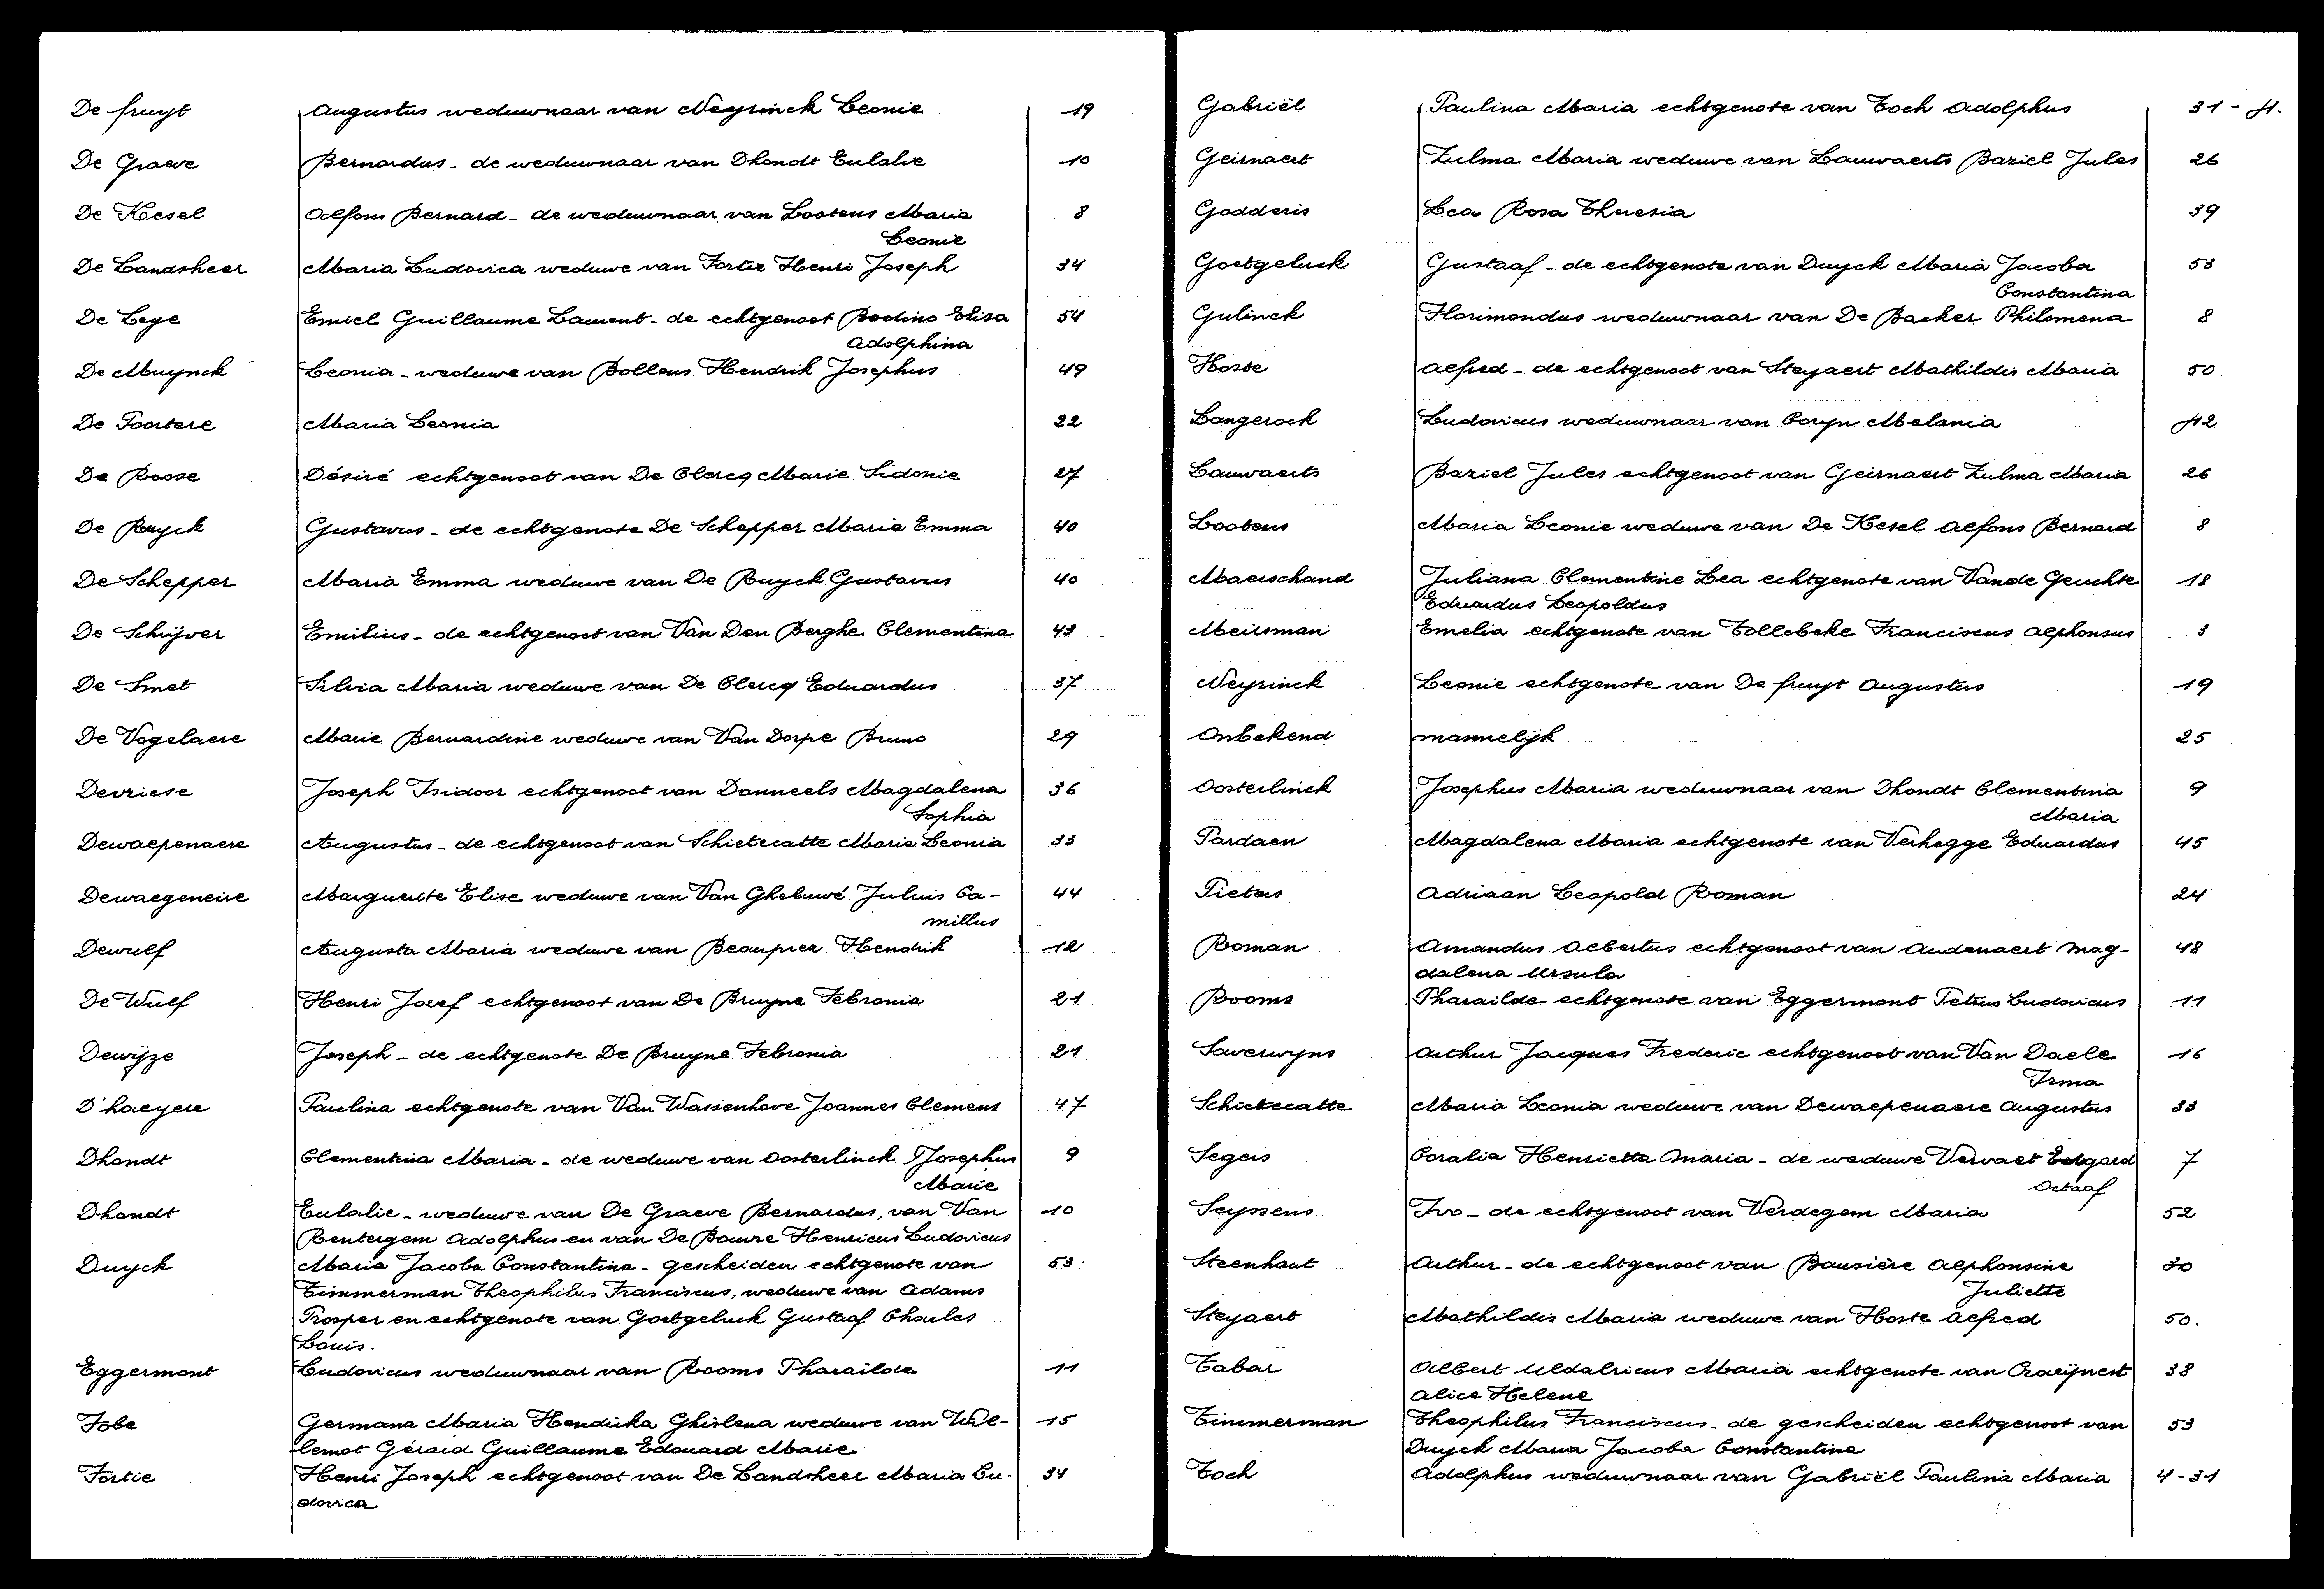 De fruyt Augustus weduwnaar van Neyrinck Leonie 19
De Graeve Bernardus - de weduwnaar van Dhondt Eulalie 10
De Kesel Alfons Bernard - de weduwnaar van Lootens Maria 8
Leonie
De Landsheer Maria Ludovica weduwe van Fortie Henri Joseph 34
De Lege Emiel Guillaume Laurent - de echtgenoot Bodino Elisa 54
Adolphina
De Muynck Leonia - weduwe van Bollens Hendrik Josephus 49
De Poortere Maria Leonia 22
De Roose Désiré echtgenoot van De Clercq Marie Sidonie 27
De Ruyck Gustavus - de echtgenote De Schepper Maria Emma 40
De Schepper Maria Emma weduwe van De Ruyck Gustavus 40
De Schrijver Emilius - de echtgenoot van Van Den Berghe Clementina 43
De Smet Silvia Maria weduwe van De Clercq Eduardus 37
De Vogelaere Marie Bernardine weduwe van Van Dorpe Bruno 29
Devriese Joseph Isidoor echtgenoot van Danneels Magdalena 36
Sophia
Dewaepenaere Augustus - de echtgenoot van Schietecatte Maria Leonia 33
Dewaegeneire Marguerite Elise weduwe van Van Gheluwé Juluis Ca-44
millus
Dewulf Augusta Maria weduwe van Beauprez Hendrik 12
De Wulf Henri Jozef echtgenoot van De Bruyne Febronia 21
Dewijze Joseph - de echtgenote De Bruyne Febronia 21
D'haeyere Paulina echtgenote van Van Wassenhove Joannes Clemens 47
Dhondt Clementina Maria - de weduwe van Oosterlinck Josephus 9
Marie
Dhondt Eulalie - weduwe van De Graeve Bernardus, van Van 10
Rentergem Adolphus en van De Bouvre Henricus Ludovicus
Duyck Maria Jacoba Constantina - gescheiden echtgenote van 53
Timmerman Theophilus Franciscus, weduwe van Adams
Prosper en echtgenote van Goetgeluck Gustaaf Charles
Louis.
Eggermont Ludovicus weduwnaar van Rooms Pharailde 11
Fobe Germana Maria Hendrika Ghislena weduwe van Wil-15
lemot Gérard Guillaume Edouard Marie
Fortie Henri Joseph echtgenoot van De Landsheer Maria Lu-34
dovica
Gabriël Paulina Maria echtgenote van Toch Adolphus 31 - 4.
Geirnaert Zulma Maria weduwe van Lauwaerts Baziel Jules 26
Godderis Lea Rosa Theresia 39
Goetgeluck Gustaaf - de echtgenote van Duyck Maria Jacoba 53
Constantina
Gulinck Florimondus weduwnaar van De Backer Philomena 8
Hoste Alfred - de echtgenoot van Steyaert Mathildis Maria 50
Langerock Ludovicus weduwnaar van Coryn Melania 42
Lauwaerts Baziel Jules echtgenoot van Geirnaert Zulma Maria 26
Lootens Maria Leonie weduwe van De Kesel Alfons Bernard 8
Maerschand Juliana Clementine Lea echtgenote van Vande Geuchte 18
Eduardus Leopoldus
Meirsman Emelia echtgenote van Tollebeke Franciscus Alphonsus 3
Neyrinck Leonie echtgenote van De fruyt Augustus 19
Onbekend mannelijk 25
Oosterlinck Josephus Maria weduwnaar van Dhondt Clementina 9
Maria
Pardaen Magdalena Maria echtgenote van Verhegge Eduardus 45
Pieters Adriaan Leopold Roman 24
Roman Amandus Albertus echtgenoot van Audenaert Mag-48
dalena Ursula
Rooms Pharailde echtgenote van Eggermont Petrus Ludovicus 11
Saverwyns Arthur Jacques Frederic echtgenoot van Van Daele 16
Irma
Schietecatte Maria Leonia weduwe van Dewaepenaere Augustus 33
Segers Coralia Henrietta Maria - de weduwe Vervaet Edgard 7
Octaaf
Seyssens Ivo - de echtgenoot van Verdegem Maria 52
Steenhaut Arthur - de echtgenoot van Bausière Alphonsine 30
Juliette
Steyaert Mathildis Maria weduwe van Hoste Alfred 50.
Tabar Albert Uldalricus Maria echtgenote van Craeijnest 38
Alice Helene
Timmerman Theophilus Franciscus - de gescheiden echtgenoot van 53
Duyck Maria Jacoba Constantina
Toch Adolphus weduwnaar van Gabriël Paulina Maria 4-31